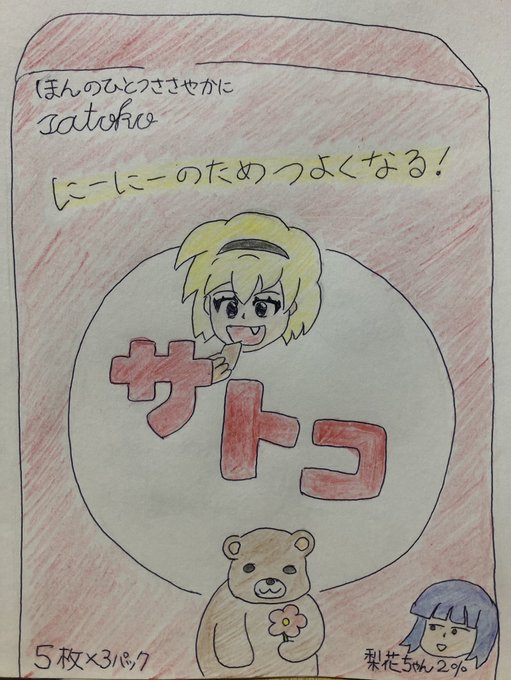 ほんのひとつささやかに
satoko
にーにーのためつよくなる!
サトコ
5枚×3パック
梨花ちゃん2%